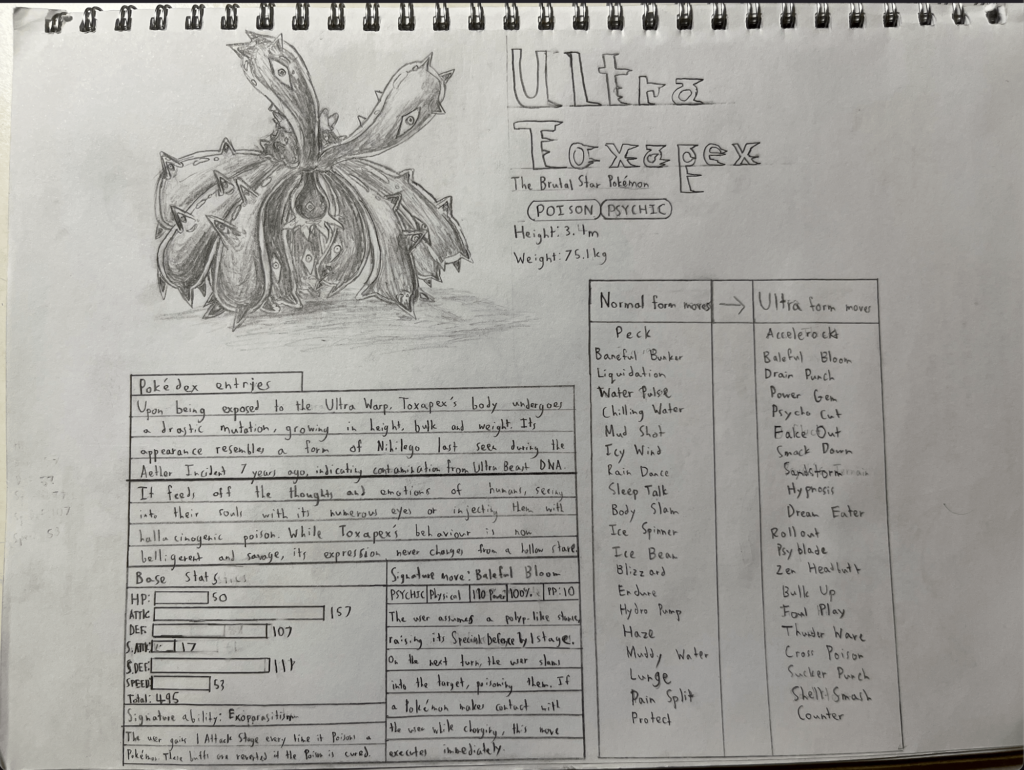 Ultra
Toxapex
The Brutal Star Pokémon
POISON PSYCHIC
Height: 3.4m
Weight: 75.1kg
Normal form moves → Ultra form moves
Peck Accelerock
Baneful Bunker Baleful Bloom
Liquidation Drain Punch
Water Pulse Power Gem
Chilling Water Psycho Cut
Mud Shot Fake Out
Icy Wind Smack Down
Rain Dance Sandstorm
Sleep Talk Hypnosis
Body Slam Dream Eater
Ice Spinner Rollout
Ice Beam Psyblade
Blizzard Zen Headbutt
Endure Bulk Up
Hydro Pump Foul Play
Haze Thunder Wave
Muddy Water Cross Poison
Lunge Sucker Punch
Pain Split Shell Smash
Protect Counter
Pokédex entries
Upon being exposed to the Ultra Warp, Toxapex's body undergoes
a drastic mutation, growing in height, bulk and weight. Its
appearance resembles a form of Nihilego last seen during the
Aether Incident 7 years ago, indicating contamination from Ultra Beast DNA.
It feeds off the thoughts and emotions of humans, seeing
into their souls with its numerous eyes or injecting them with
hallucinogenic poison. While Toxapex's behaviour is now
belligerent and savage, its expression never changes from a hollow stare.
Base Stats
HP: 50
ATTK: 157
DEF: 107
S.ATTK: 17
S.DEF: 111
SPEED: 53
Total: 495
Signature ability: Exoparasitism
The user gains 1 Attack Stage every time it Poisons a
Pokémon. These buffs are reverted if the Poison is cured.
Signature move: Baleful Bloom
PSYCHIC Physical 110 Power 100% PP: 10
The user assumes a polyp-like stance,
raising its Special Defense by 1 stage.
On the next turn, the user slams
into the target, poisoning them. If
a Pokémon makes contact with
the user while charging, this move
executes immediately.